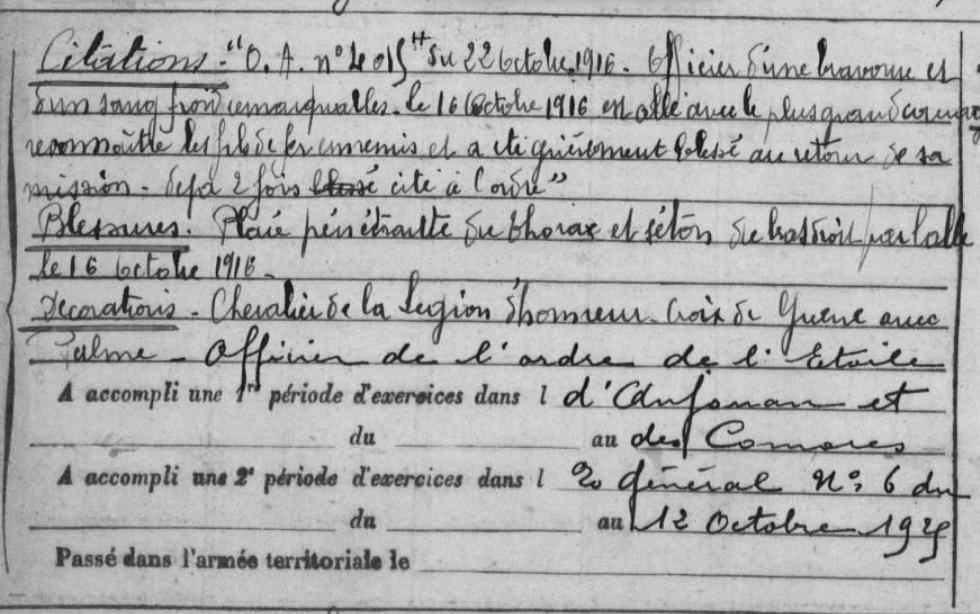 Citations - "O. A. n° 4015" du 22 Octobre 1916 - Officier d'une bravoure et
d'un sang froid remarquables - le 16 Octobre 1916 est allé avec le plus grand courage
reconnaître les fils de fer ennemis et a été grièvement blessé au retour de sa
mission - déjà 2 fois cité à l'ordre"
Blessures. Plaie pénétrante du thorax et séton du bras droit par balle
le 16 Octobre 1916 -
Décorations - Chevalier de la Légion d'honneur - Croix de Guerre avec
Palme - Officier de l'ordre de l'Etoile
A accompli une 1re période d'exercices dans l d'Anjouan et
du au des Comores
A accompli une 2e période d'exercices dans l général N° 6 du
du au 12 Octobre 1925
Passé dans l'armée territoriale le